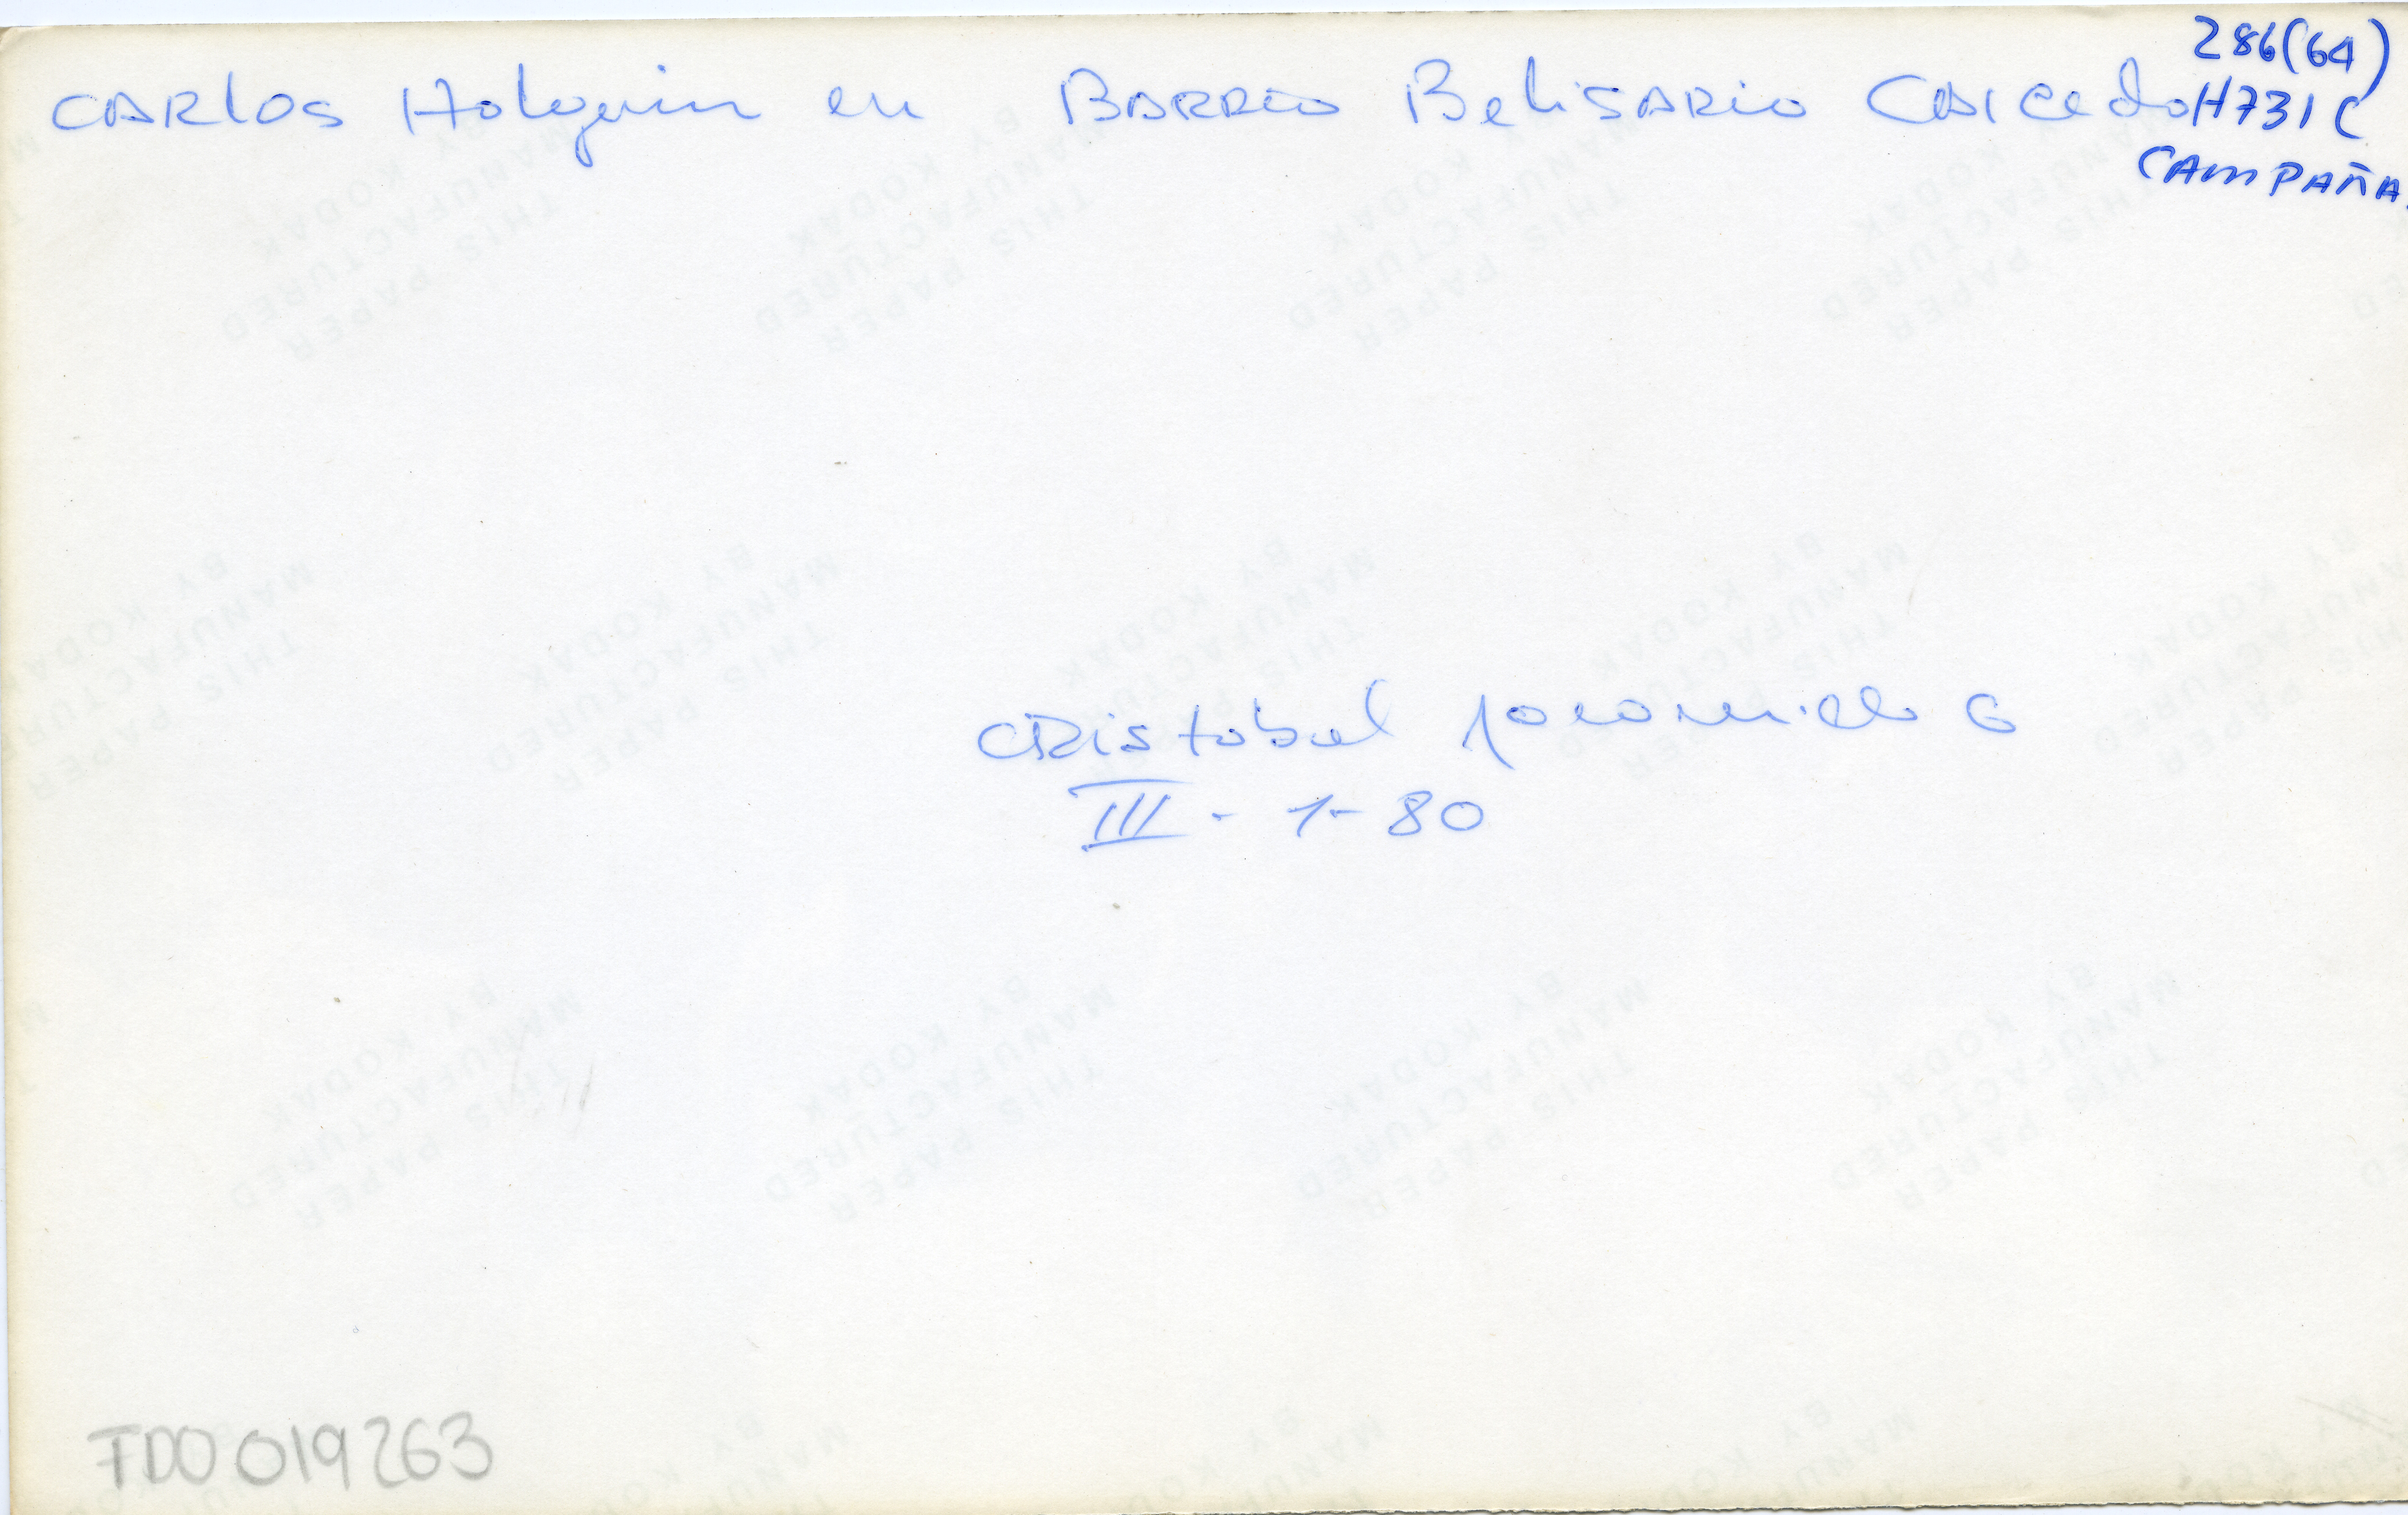 286(64)
CARlos Holguin en BARRIO BeliSARio CAICedo H731C
CAMPAÑA
CRistobal Jaramillo G
III - 1 - 80
THIS PAPER
MANUFACTURED
BY KODAK
FDO019263